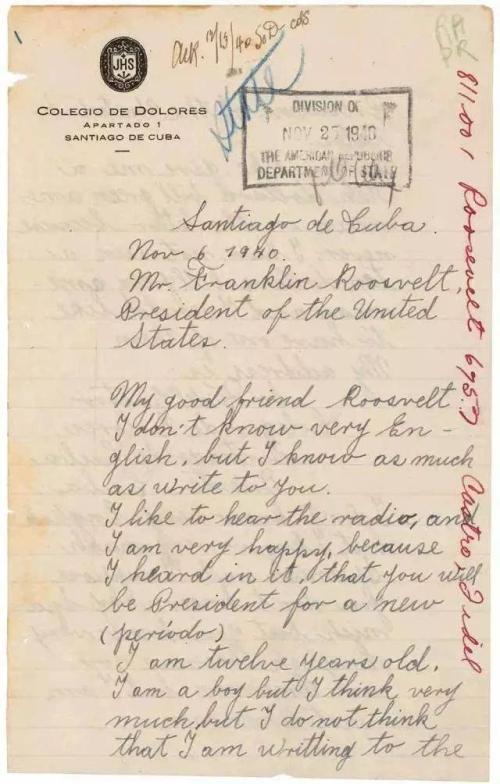 JHS
COLEGIO DE DOLORES
APARTADO 1
SANTIAGO DE CUBA
State
DIVISION OF
NOV 27 1940
THE AMERICAN REPUBLICS
DEPARTMENT OF STATE
Santiago de Cuba.
Nov 6 1940.
Mr. Franklin Roosvelt,
President of the United
States.
My good friend Roosvelt
I don't know very En-
glish, but I know as much
as write to you.
I like to hear the radio, and
I am very happy, because
I heard in it, that you will
be President for a new
(período)
I am twelve years old.
I am a boy but I think very
much, but I do not think
that I am writting to the
811.001 Roosevelt 6957
Castro, Fidel